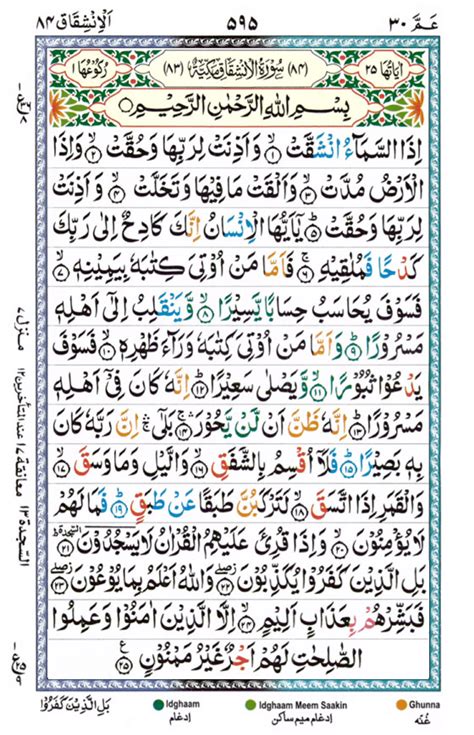 اَلْاِنْشِقَاق ٨٤ ٥٩٥ عَمَّ ٣٠
اٰيَاتُهَا ٢٥ (٨٤) سُوْرَةُ الْاِنْشِقَاقِ مَكِّيَّةٌ (٨٣) رُكُوْعُهَا ١
بِسْمِ اللّٰهِ الرَّحْمٰنِ الرَّحِيْمِ ○
اِذَا السَّمَآءُ انْشَقَّتْ ۙ﴿١﴾ وَاَذِنَتْ لِرَبِّهَا وَحُقَّتْ ۙ﴿٢﴾ وَاِذَا
الْاَرْضُ مُدَّتْ ۙ﴿٣﴾ وَاَلْقَتْ مَا فِيْهَا وَتَخَلَّتْ ۙ﴿٤﴾ وَاَذِنَتْ
لِرَبِّهَا وَحُقَّتْ ؕ﴿٥﴾ يٰۤاَيُّهَا الْاِنْسَانُ اِنَّكَ كَادِحٌ اِلٰى رَبِّكَ
كَدْحًا فَمُلٰقِيْهِ ۚ﴿٦﴾ فَاَمَّا مَنْ اُوْتِىَ كِتٰبَهٗ بِيَمِيْنِهٖ ۙ﴿٧﴾
فَسَوْفَ يُحَاسَبُ حِسَابًا يَّسِيْرًا ۙ﴿٨﴾ وَّيَنْقَلِبُ اِلٰٓى اَهْلِهٖ
مَسْرُوْرًا ؕ﴿٩﴾ وَاَمَّا مَنْ اُوْتِىَ كِتٰبَهٗ وَرَآءَ ظَهْرِهٖ ۙ﴿١٠﴾ فَسَوْفَ
يَدْعُوْا ثُبُوْرًا ۙ﴿١١﴾ وَّيَصْلٰى سَعِيْرًا ؕ﴿١٢﴾ اِنَّهٗ كَانَ فِىْۤ اَهْلِهٖ
مَسْرُوْرًا ؕ﴿١٣﴾ اِنَّهٗ ظَنَّ اَنْ لَّنْ يَّحُوْرَ ۚۛ﴿١٤﴾ بَلٰٓى ۚۛ اِنَّ رَبَّهٗ كَانَ
بِهٖ بَصِيْرًا ؕ﴿١٥﴾ فَلَاۤ اُقْسِمُ بِالشَّفَقِ ۙ﴿١٦﴾ وَالَّيْلِ وَمَا وَسَقَ ۙ﴿١٧﴾
وَالْقَمَرِ اِذَا اتَّسَقَ ۙ﴿١٨﴾ لَتَرْكَبُنَّ طَبَقًا عَنْ طَبَقٍ ؕ﴿١٩﴾ فَمَا لَهُمْ
لَا يُؤْمِنُوْنَ ۙ﴿٢٠﴾ وَاِذَا قُرِئَ عَلَيْهِمُ الْقُرْاٰنُ لَا يَسْجُدُوْنَ ؕ﴿٢١﴾ السجدة
بَلِ الَّذِيْنَ كَفَرُوْا يُكَذِّبُوْنَ ۖ﴿٢٢﴾ وَاللّٰهُ اَعْلَمُ بِمَا يُوْعُوْنَ ۖ﴿٢٣﴾
فَبَشِّرْهُمْ بِعَذَابٍ اَلِيْمٍ ۙ﴿٢٤﴾ اِلَّا الَّذِيْنَ اٰمَنُوْا وَعَمِلُوا
الصّٰلِحٰتِ لَهُمْ اَجْرٌ غَيْرُ مَمْنُوْنٍ ﴿٢٥﴾ ع
منزل ٧
معانقة ١٧ عند المتأخرين ١٢
السجدة ١٣
بَلِ الَّذِيْنَ كَفَرُوْا
Idghaam
ادغام
Idghaam Meem Saakin
ادغام میم ساکن
Ghunna
غُنّه